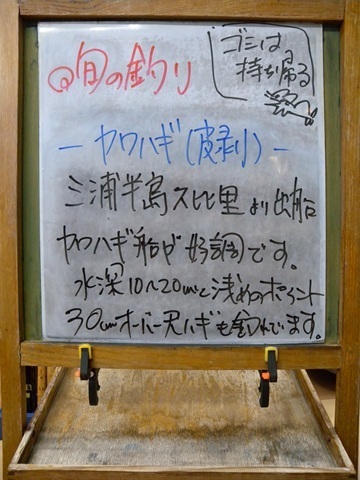 旬の釣り
ゴミは
持ち帰る
ー カワハギ(皮剥り) ー
三浦半島久比里より出船
カワハギ船が好調です。
水深10~20mと浅めのポイント
30cmオーバー尺ハギも釣れています。